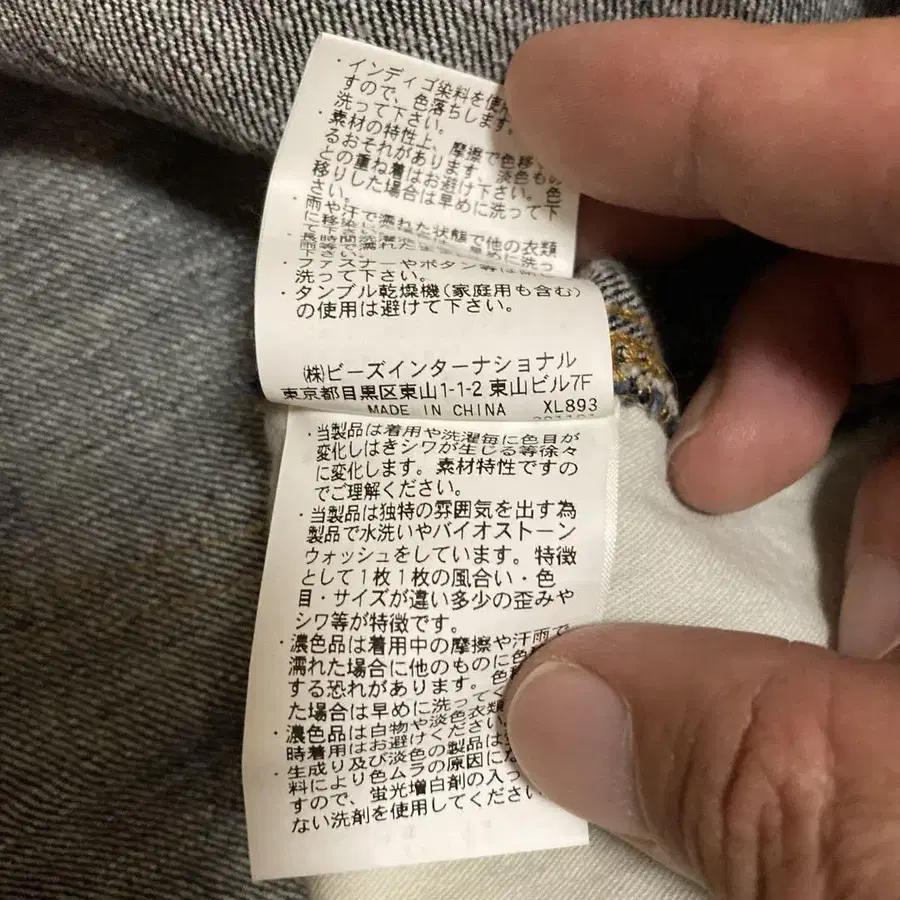 ・インディゴ染料を使
すので、色落ちします。
洗って下さい。
・素材の特性上、摩擦で色移
るおそれがあります。淡色もの
との重ね着はお避け下さい。色
移りした場合は早めに洗って下
さい。
・雨や汗で濡れた状態で他の衣類
に移染
・ファスナーやボタン等は
洗って下さい。
・タンブル乾燥機(家庭用も含む)
の使用は避けて下さい。
㈱ビーズインターナショナル
東京都目黒区東山1-1-2 東山ビル7F
MADE IN CHINA XL893
・当製品は着用や洗濯毎に色目が
変化しはきシワが生じる等徐々
に変化します。素材特性ですの
でご理解ください。
・当製品は独特の雰囲気を出す為
製品で水洗いやバイオストーン
ウォッシュをしています。特徴
として1枚1枚の風合い・色
目・サイズが違い多少の歪みや
シワ等が特徴です。
・濃色品は着用中の摩擦や汗雨で
濡れた場合に他のものに色移
する恐れがあります。色移
た場合は早めに洗ってく
・濃色品は白物や淡色衣類
時着用はお避けください。
・生成り及び淡色の製品は
料により色ムラの原因にな
すので、蛍光増白剤の入っ
ない洗剤を使用してください